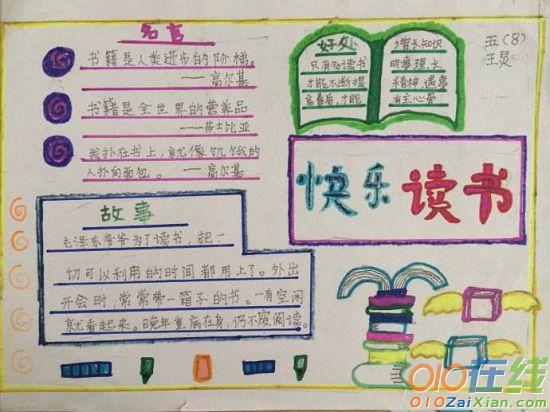 名言
书籍是人类进步的阶梯。
——高尔基
书籍是全世界的营养品
——莎士比亚
我扑在书上，就像饥饿的
人扑向面包。——高尔基
好处
只有多读书
才能不断提
高素质，才能
增长知识
明事理，长
精神，遇事
有主心骨
五（8）
王炅
快乐读书
故事
毛泽东爷爷为了读书，把一
切可以利用的时间都用上了。外出
开会时，常常带一箱子的书。一有空闲
就看起来。晚年重病在身，仍不废阅读。
010在线
010ZaiXian.com